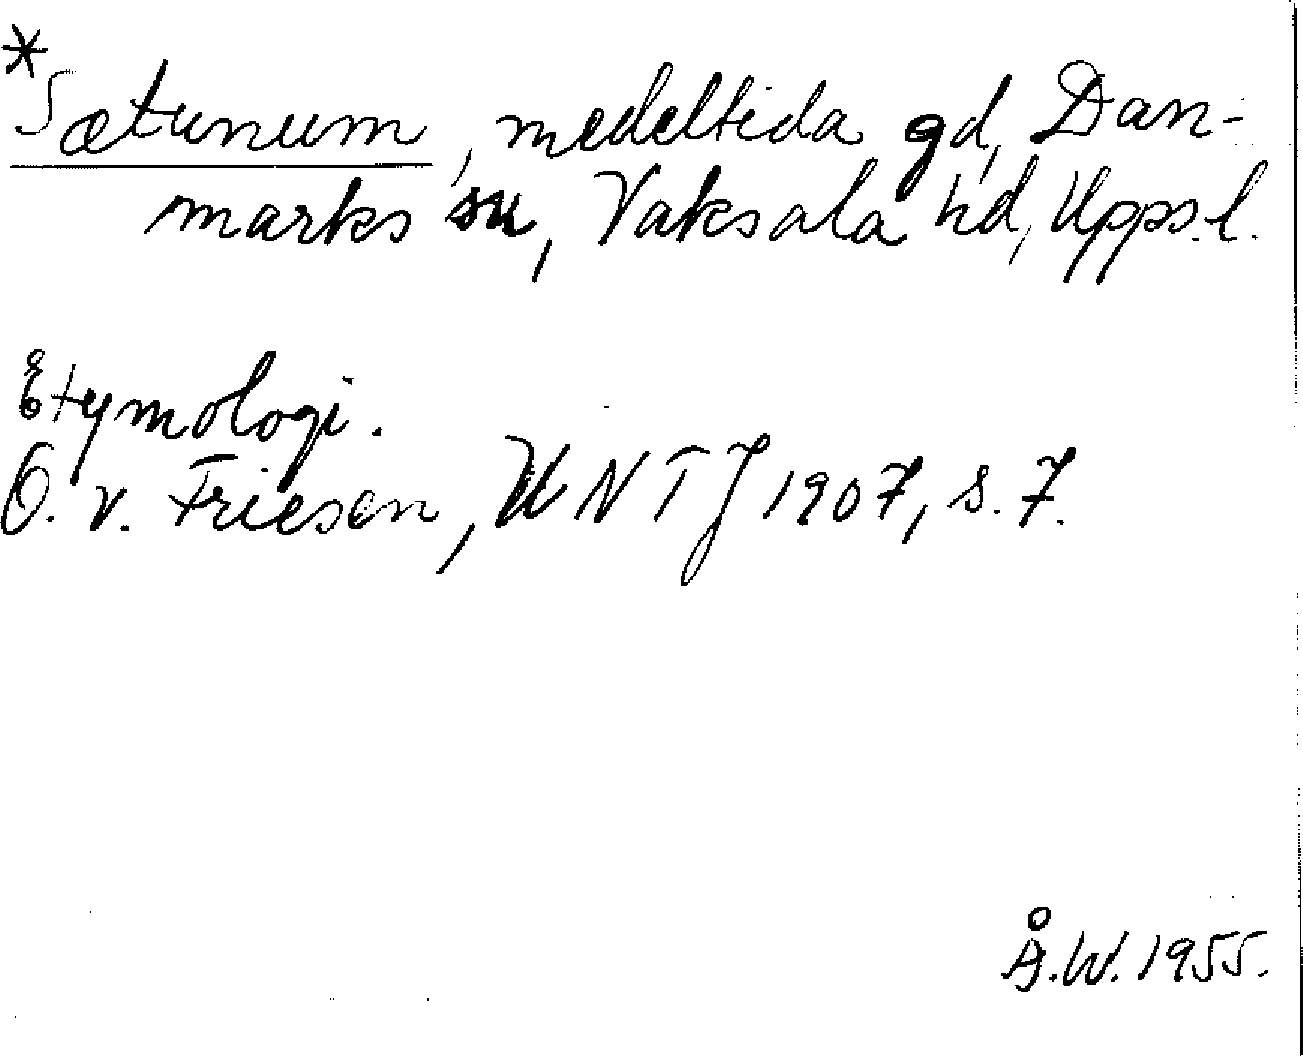 *Sætunum, medeltida gd, Dan-
marks su, Vaksala hd, Upps.l.
Etymologi.
O. v. Friesen, UNTJ 1907, s. 7.
Å.W. 1955.